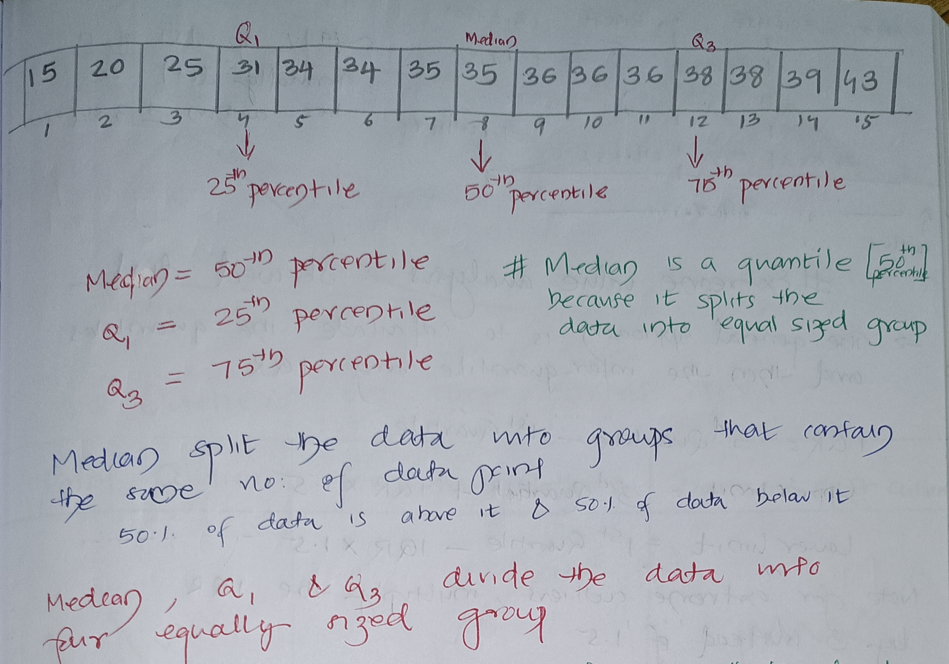 Q₁ Median Q₃
15 20 25 31 34 34 35 35 36 36 36 38 38 39 43
1 2 3 4 5 6 7 8 9 10 11 12 13 14 15
25th percentile 50th percentile 75th percentile
Median = 50th percentile
Q₁ = 25th percentile
Q₃ = 75th percentile
# Median is a quantile [50th percentile]
because it splits the
data into equal sized group
Median split the data into groups that contain
the same no: of data point
50% of data is above it & 50% of data below it
Median, Q₁ & Q₃ divide the data into
four equally sized group